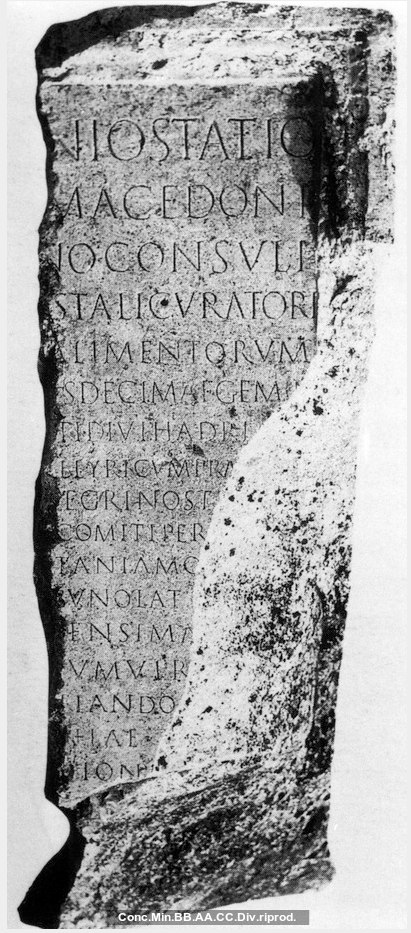 NIO STATIO
MACEDONI
IO CONSULI
STALI CVRATORI
ALIMENTORVM
IS DECIMAE GEM
TI DIVI HADRI
ILLYRICVM TRA
EGRINOS T
COMITI PER
TANIAM C
VNO LAT
ENSIMA
VM VTR
LANDO
TIAE
TIONE
Conc.Min.BB.AA.CC.Div.riprod.